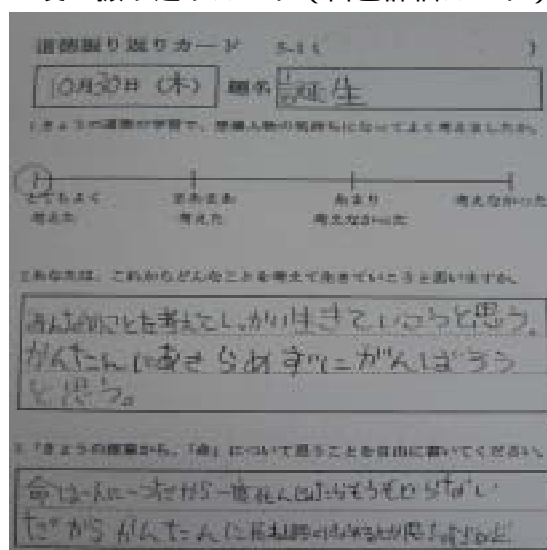 道徳振り返りカード 5-1 ( )
10月30日 (木) 題名 誕生
1.きょうの道徳の学習で、登場人物の気持ちになってよく考えましたか。
とてもよく まあまあ あまり 考えなかった
考えた 考えた 考えなかった
2.あなたは、これからどんなことを考えて生きていこうと思いますか。
みんなのことを考えてしっかり生きていこうと思う。
かんたんにあきらめずにがんばろう
と思う。
3.「きょうの授業から、「命」について思うことを自由に書いてください。
命は一人に一つだから一度
だからかんたんに